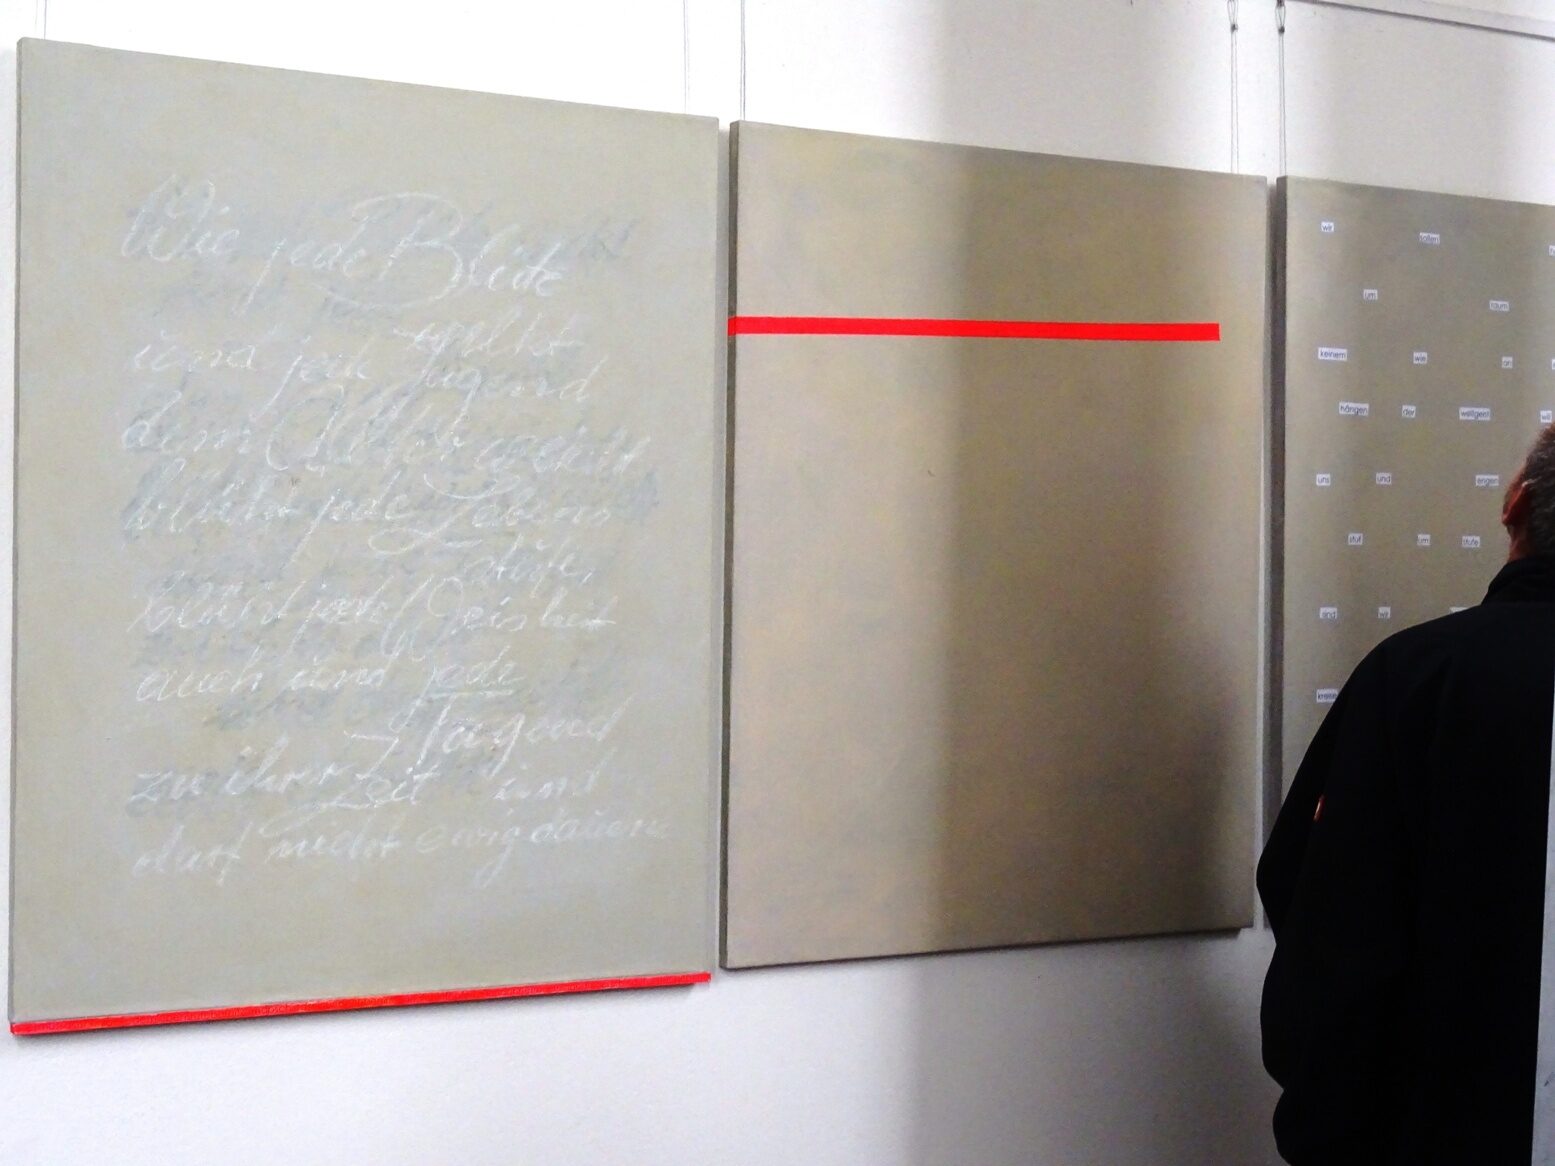 Wie jede Blüte
welkt
und jede Jugend
dem Alter weicht
blüht jede Lebens
stufe,
blüht jede Weisheit
auch und jede
Tugend
zu ihrer Zeit und
darf nicht ewig dauern
wir sollen
um raum
keinem wie an
hängen der weltgeist will
uns und engen
stuf um stufe
sind wir
kreise